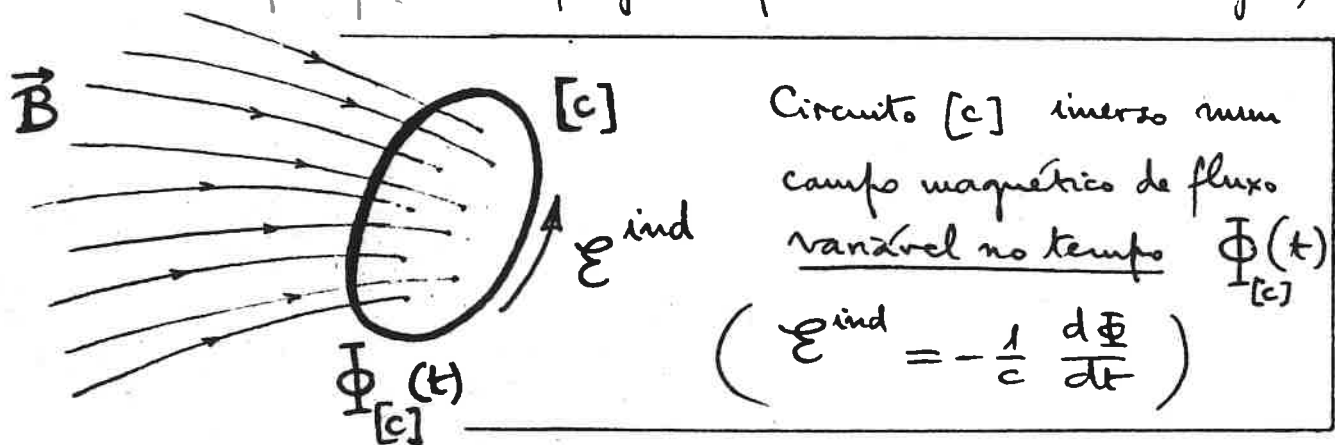 B⃗
[c]
ℰ^ind
Φ_[c](t)
Circuito [c] imerso num
campo magnético de fluxo
variável no tempo Φ_[c](t)
( ℰ^ind = - 1/c dΦ/dt )